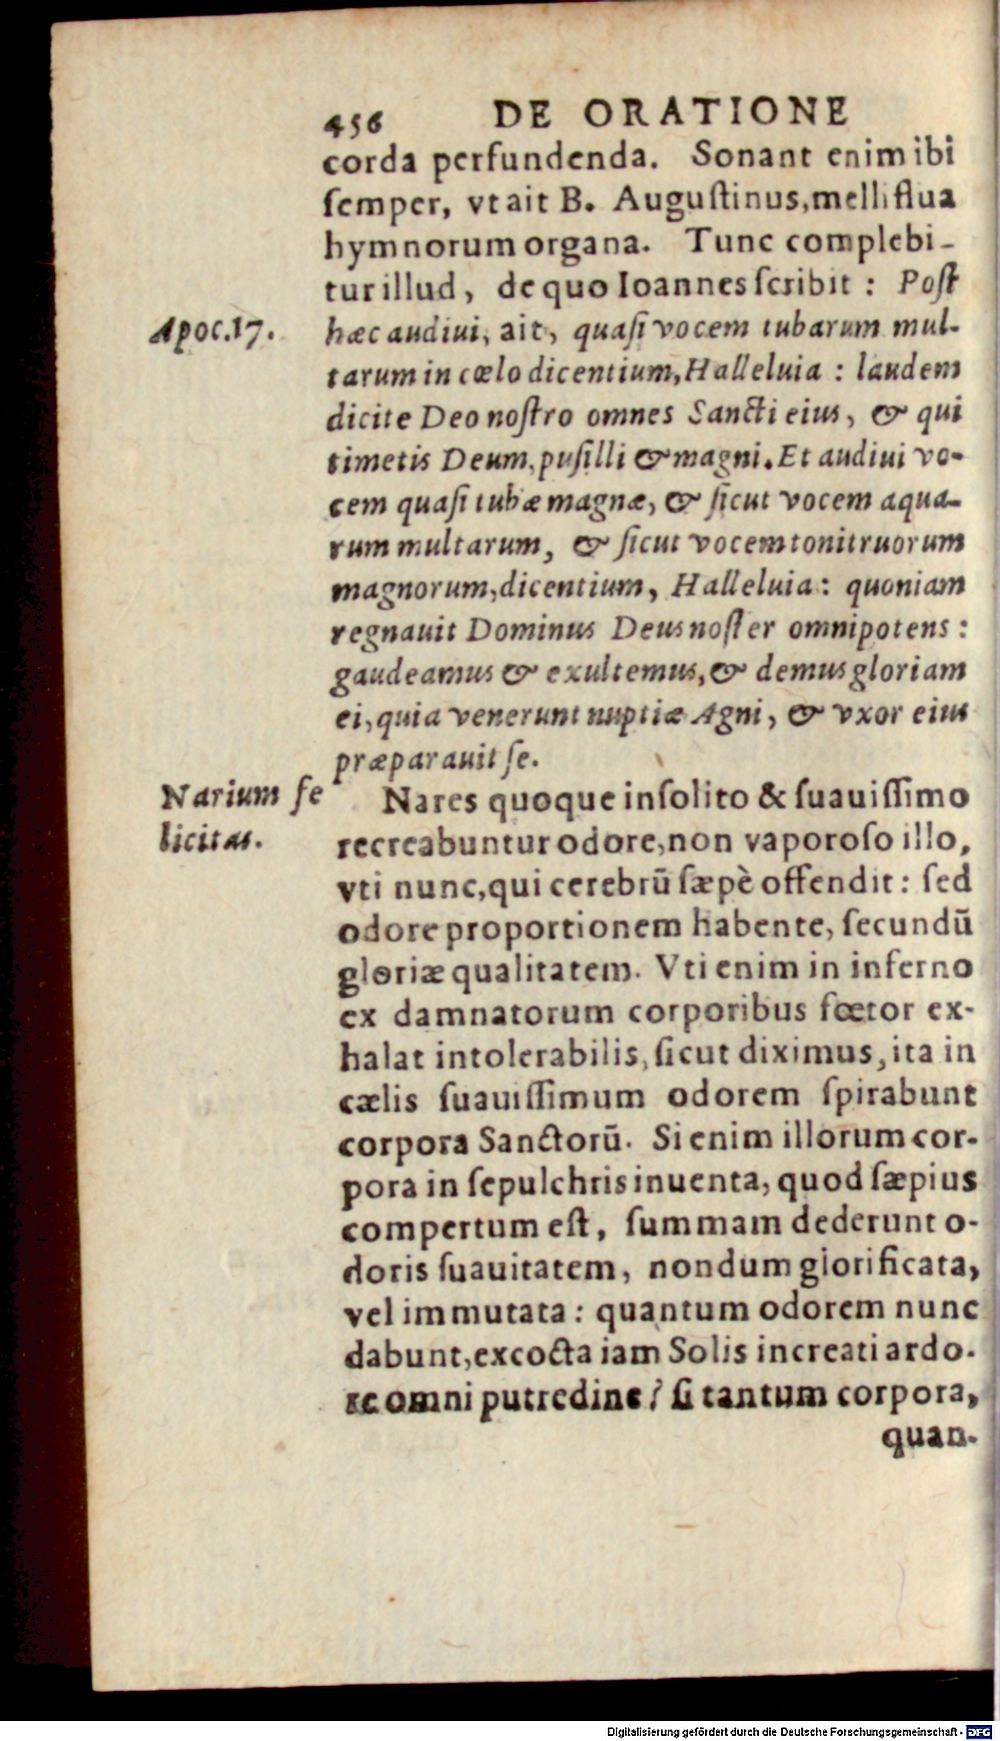 456 DE ORATIONE
corda perfundenda. Sonant enim ibi
ſemper, vt ait B. Auguſtinus, melliflua
hymnorum organa. Tunc complebi-
tur illud, de quo Ioannes ſcribit : Poſt
Apoc. 17.
hæc audiui, ait, quaſi vocem tubarum mul-
tarum in cœlo dicentium, Halleluia : laudem
dicite Deo noſtro omnes Sancti eius, & qui
timetis Deum, puſilli & magni. Et audiui vo-
cem quaſi tubæ magnæ, & ſicut vocem aqua-
rum multarum, & ſicut vocem tonitruorum
magnorum, dicentium, Halleluia : quoniam
regnauit Dominus Deus noſter omnipotens :
gaudeamus & exultemus, & demus gloriam
ei, quia venerunt nuptiæ Agni, & vxor eius
præparauit ſe.
Narium fe
licitas.
Nares quoque inſolito & ſuauiſſimo
recreabuntur odore, non vaporoſo illo,
vti nunc, qui cerebrū ſæpè offendit : ſed
odore proportionem habente, ſecundū
gloriæ qualitatem. Vti enim in inferno
ex damnatorum corporibus fœtor ex-
halat intolerabilis, ſicut diximus, ita in
cælis ſuauiſſimum odorem ſpirabunt
corpora Sanctorū. Si enim illorum cor-
pora in ſepulchris inuenta, quod ſæpius
compertum eſt, ſummam dederunt o-
doris ſuauitatem, nondum glorificata,
vel immutata : quantum odorem nunc
dabunt, excocta iam Solis increati ardo-
re omni putredine ? ſi tantum corpora,
quan-
Digitalisierung gefördert durch die Deutsche Forschungsgemeinschaft - DFG